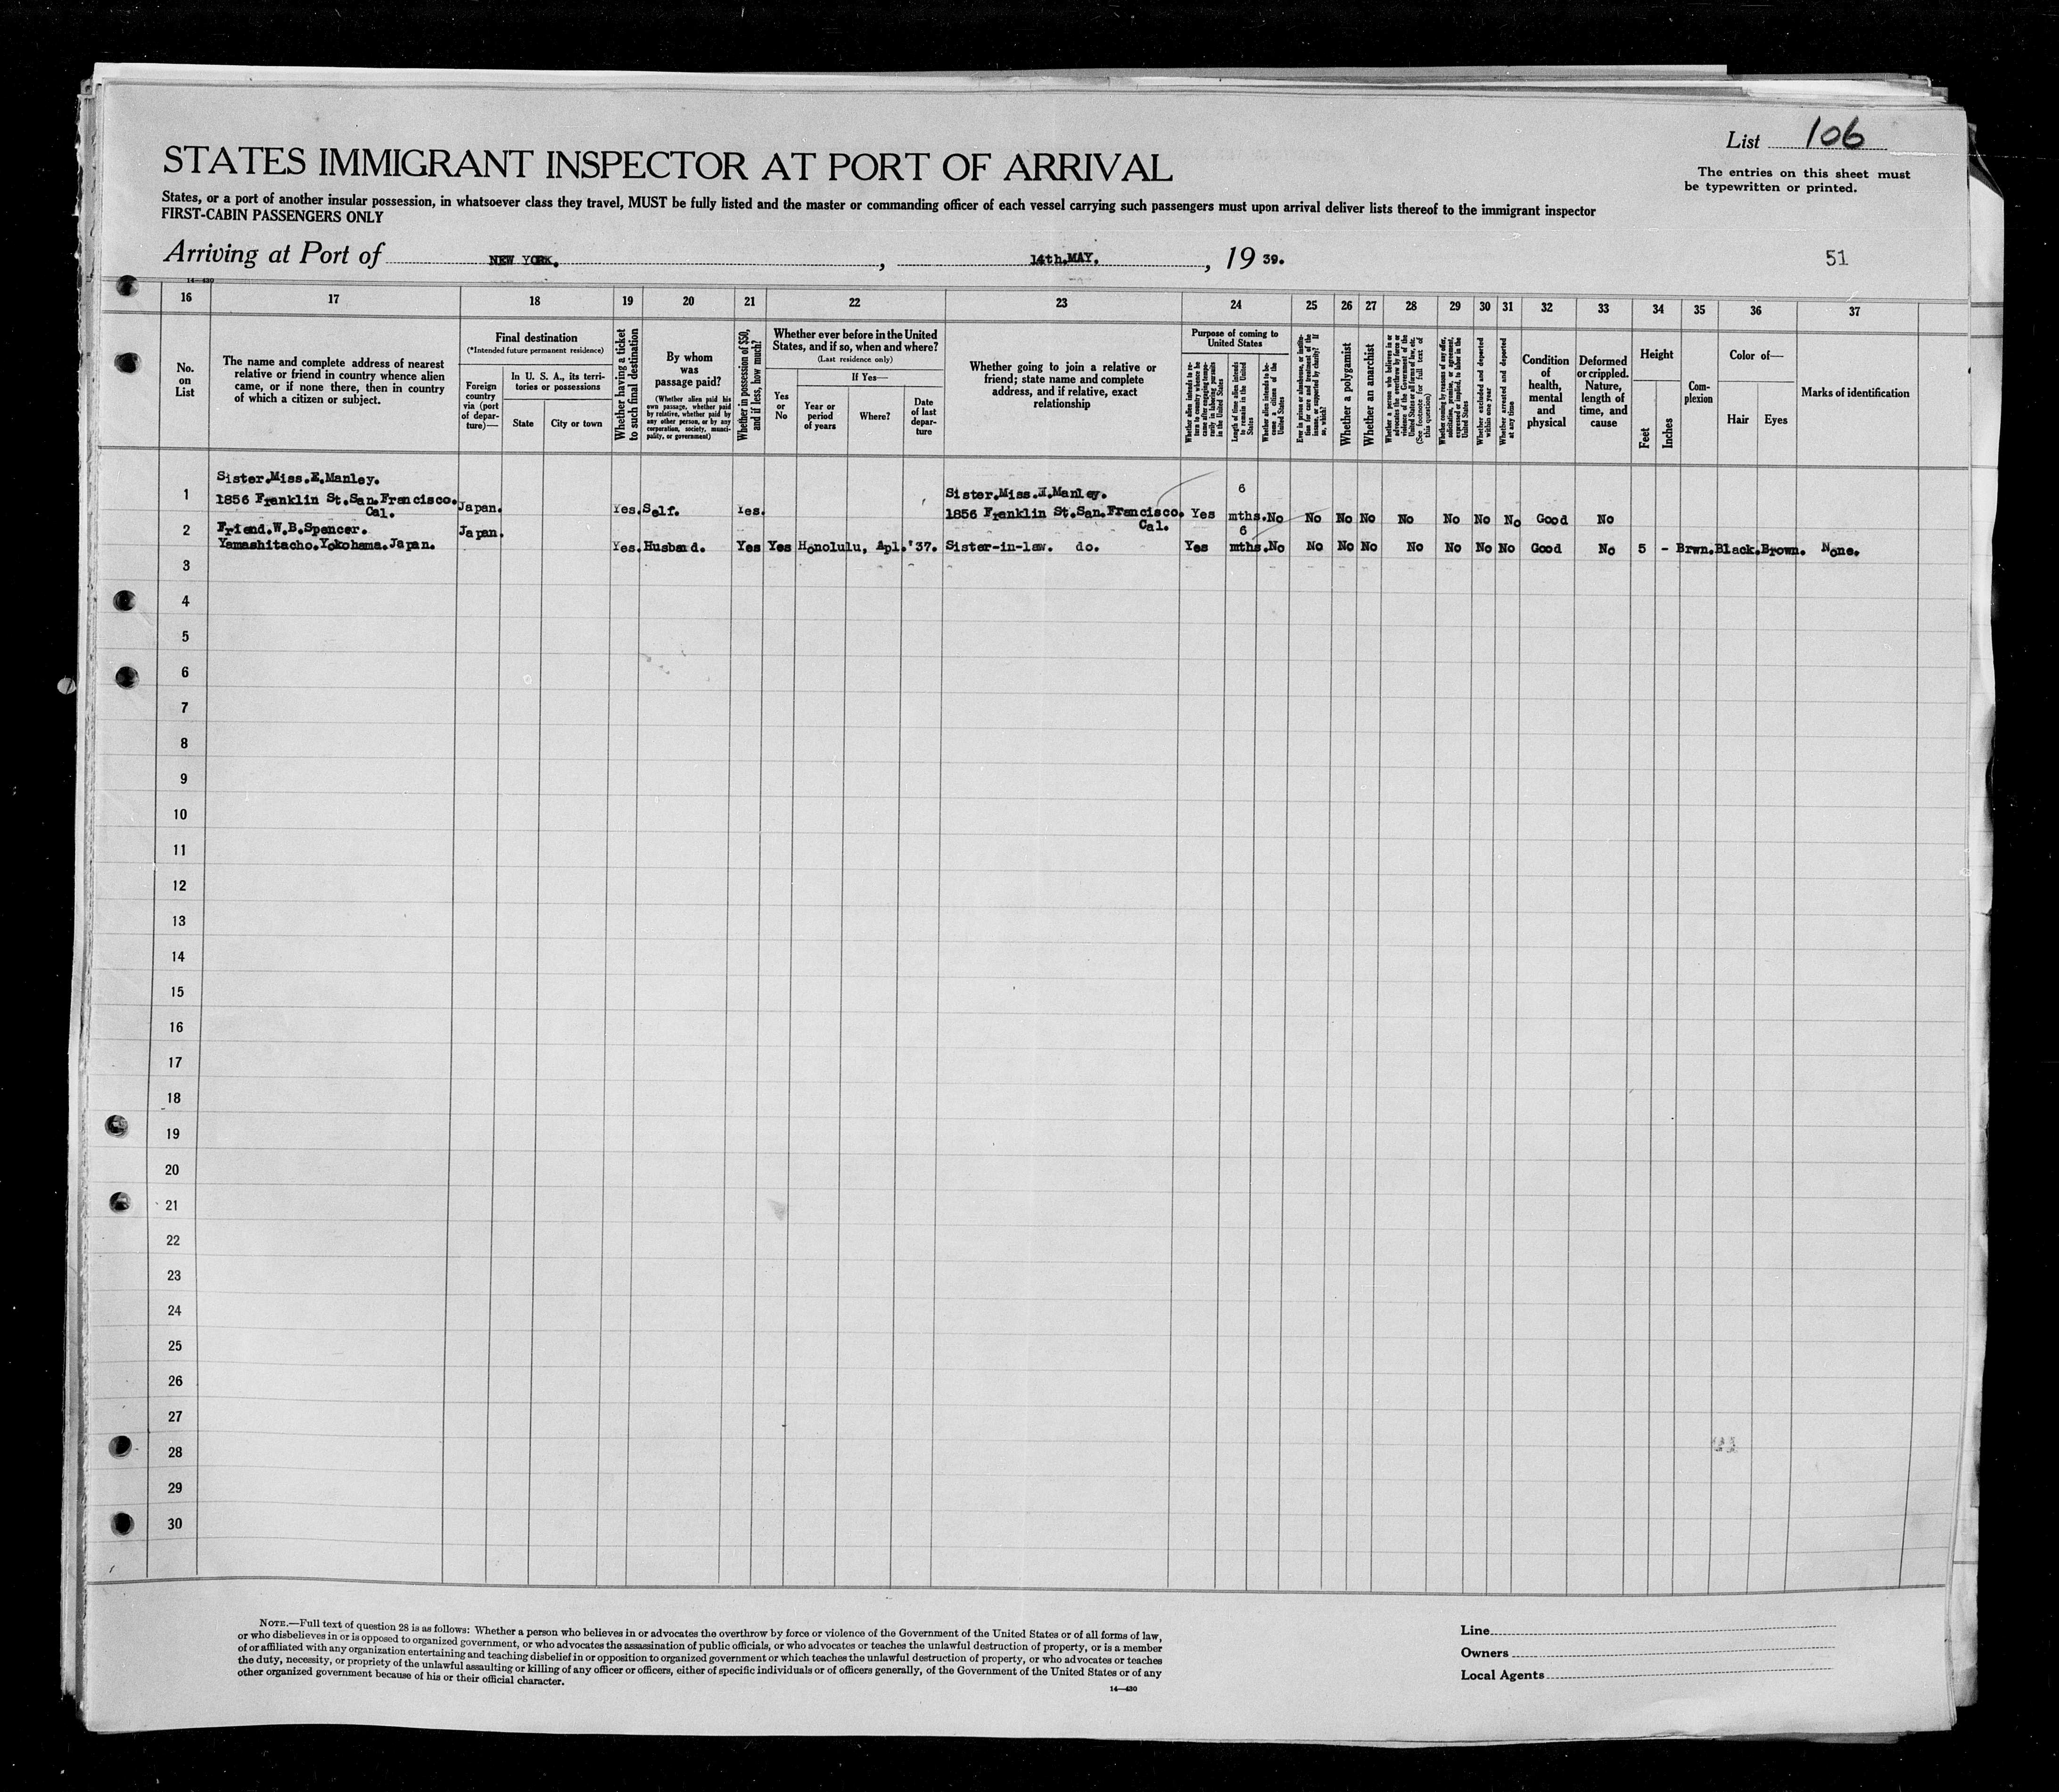 List 106
STATES IMMIGRANT INSPECTOR AT PORT OF ARRIVAL
The entries on this sheet must
be typewritten or printed.
States, or a port of another insular possession, in whatsoever class they travel, MUST be fully listed and the master or commanding officer of each vessel carrying such passengers must upon arrival deliver lists thereof to the immigrant inspector
FIRST-CABIN PASSENGERS ONLY
Arriving at Port of NEW YORK. , 14th.MAY. , 19 39.
51
14—430
16 17 18 19 20 21 22 23 24 25 26 27 28 29 30 31 32 33 34 35 36 37
No.
on
List
The name and complete address of nearest
relative or friend in country whence alien
came, or if none there, then in country
of which a citizen or subject.
Final destination
(*Intended future permanent residence)
Foreign
country
via (port
of depar-
ture)—
In U. S. A., its terri-
tories or possessions
State
City or town
Whether having a ticket
to such final destination
By whom
was
passage paid?
(Whether alien paid his
own passage, whether paid
by relative, whether paid by
any other person, or by any
corporation, society, munici-
pality, or government)
Whether in possession of $50,
and if less, how much?
Whether ever before in the United
States, and if so, when and where?
(Last residence only)
Yes
or
No
If Yes—
Year or
period
of years
Where?
Date
of last
depar-
ture
Whether going to join a relative or
friend; state name and complete
address, and if relative, exact
relationship
Purpose of coming to
United States
Whether alien intends to re-
turn to country whence he
came after engaging tempo-
rarily in laboring pursuits
in the United States
Length of time alien intends
to remain in the United
States
Whether alien intends to be-
come a citizen of the
United States
Ever in prison or almshouse, or institu-
tion for care and treatment of the
insane, or supported by charity? If
so, which?
Whether a polygamist
Whether an anarchist
Whether a person who believes in or
advocates the overthrow by force or
violence of the Government of the
United States or all forms of law, etc.
(See footnote for full text of
this question)
Whether coming by reason of any offer,
solicitation, promise, or agreement,
expressed or implied, to labor in the
United States
Whether excluded and deported
within one year
Whether arrested and deported
at any time
Condition
of
health,
mental
and
physical
Deformed
or crippled.
Nature,
length of
time, and
cause
Height
Feet
Inches
Com-
plexion
Color of—
Hair
Eyes
Marks of identification
1 Sister.Miss.E.Manley.
1856 Franklin St.San.Francisco.
Cal.
Japan. Yes. Self. Yes.
Sister.Miss. Manley.
1856 Franklin St.San.Francisco.
Cal.
Yes 6 mths. No No No No No No No No Good No
2 Friend.W.B.Spencer.
Yamashitacho.Yokohama.Japan.
Japan. Yes. Husband. Yes Yes Honolulu, Apl.'37. Sister-in-law. do. Yes 6 mths. No No No No No No No No Good No 5 - Brwn. Black. Brown. None.
3
4
5
6
7
8
9
10
11
12
13
14
15
16
17
18
19
20
21
22
23
24
25
26
27
28
29
30
NOTE.—Full text of question 28 is as follows: Whether a person who believes in or advocates the overthrow by force or violence of the Government of the United States or of all forms of law,
or who disbelieves in or is opposed to organized government, or who advocates the assassination of public officials, or who advocates or teaches the unlawful destruction of property, or is a member
of or affiliated with any organization entertaining and teaching disbelief in or opposition to organized government or which teaches the unlawful destruction of property, or who advocates or teaches
the duty, necessity, or propriety of the unlawful assaulting or killing of any officer or officers, either of specific individuals or of officers generally, of the Government of the United States or of any
other organized government because of his or their official character.
14—430
Line
Owners
Local Agents